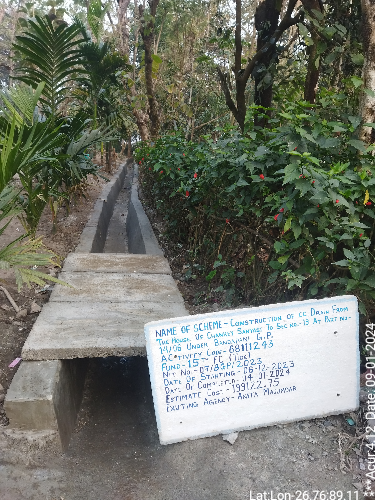 NAME OF SCHEME - CONSTRUCTION OF CC DRAIN FROM
THE HOUSE OF SANTOSH TO SECTOR-13 AT PART NO-
14/96 UNDER BANDHANI G.P.
ACTIVITY CODE - 68111243
FUND - 15TH FC (TIDE)
NIT NO - 07/BGP/2023
DATE OF STARTING - 06-12-2023
DATE OF COMPLETED - 14-01-2024
ESTIMATE COST - 199122.75
EXUTING AGENCY - ANITA MAJUMDAR
Lat:Lon-26.76:89.11
**Acur:4.12_Date:09-01-2024